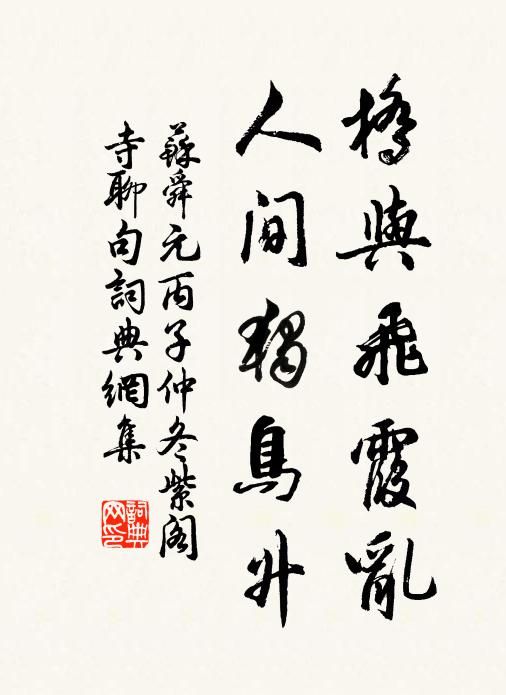 橋與飛霞亂
人间獨鳥升
蘇舜元丙子仲冬紫阁
寺聊句詞典網集
詞典网印